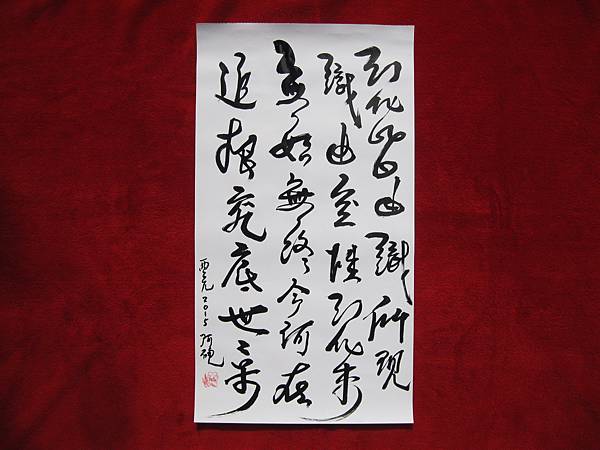 幻化皆由識所現
識由空性幻化來
無始無終今何在
追根究底世
西元2015 阿